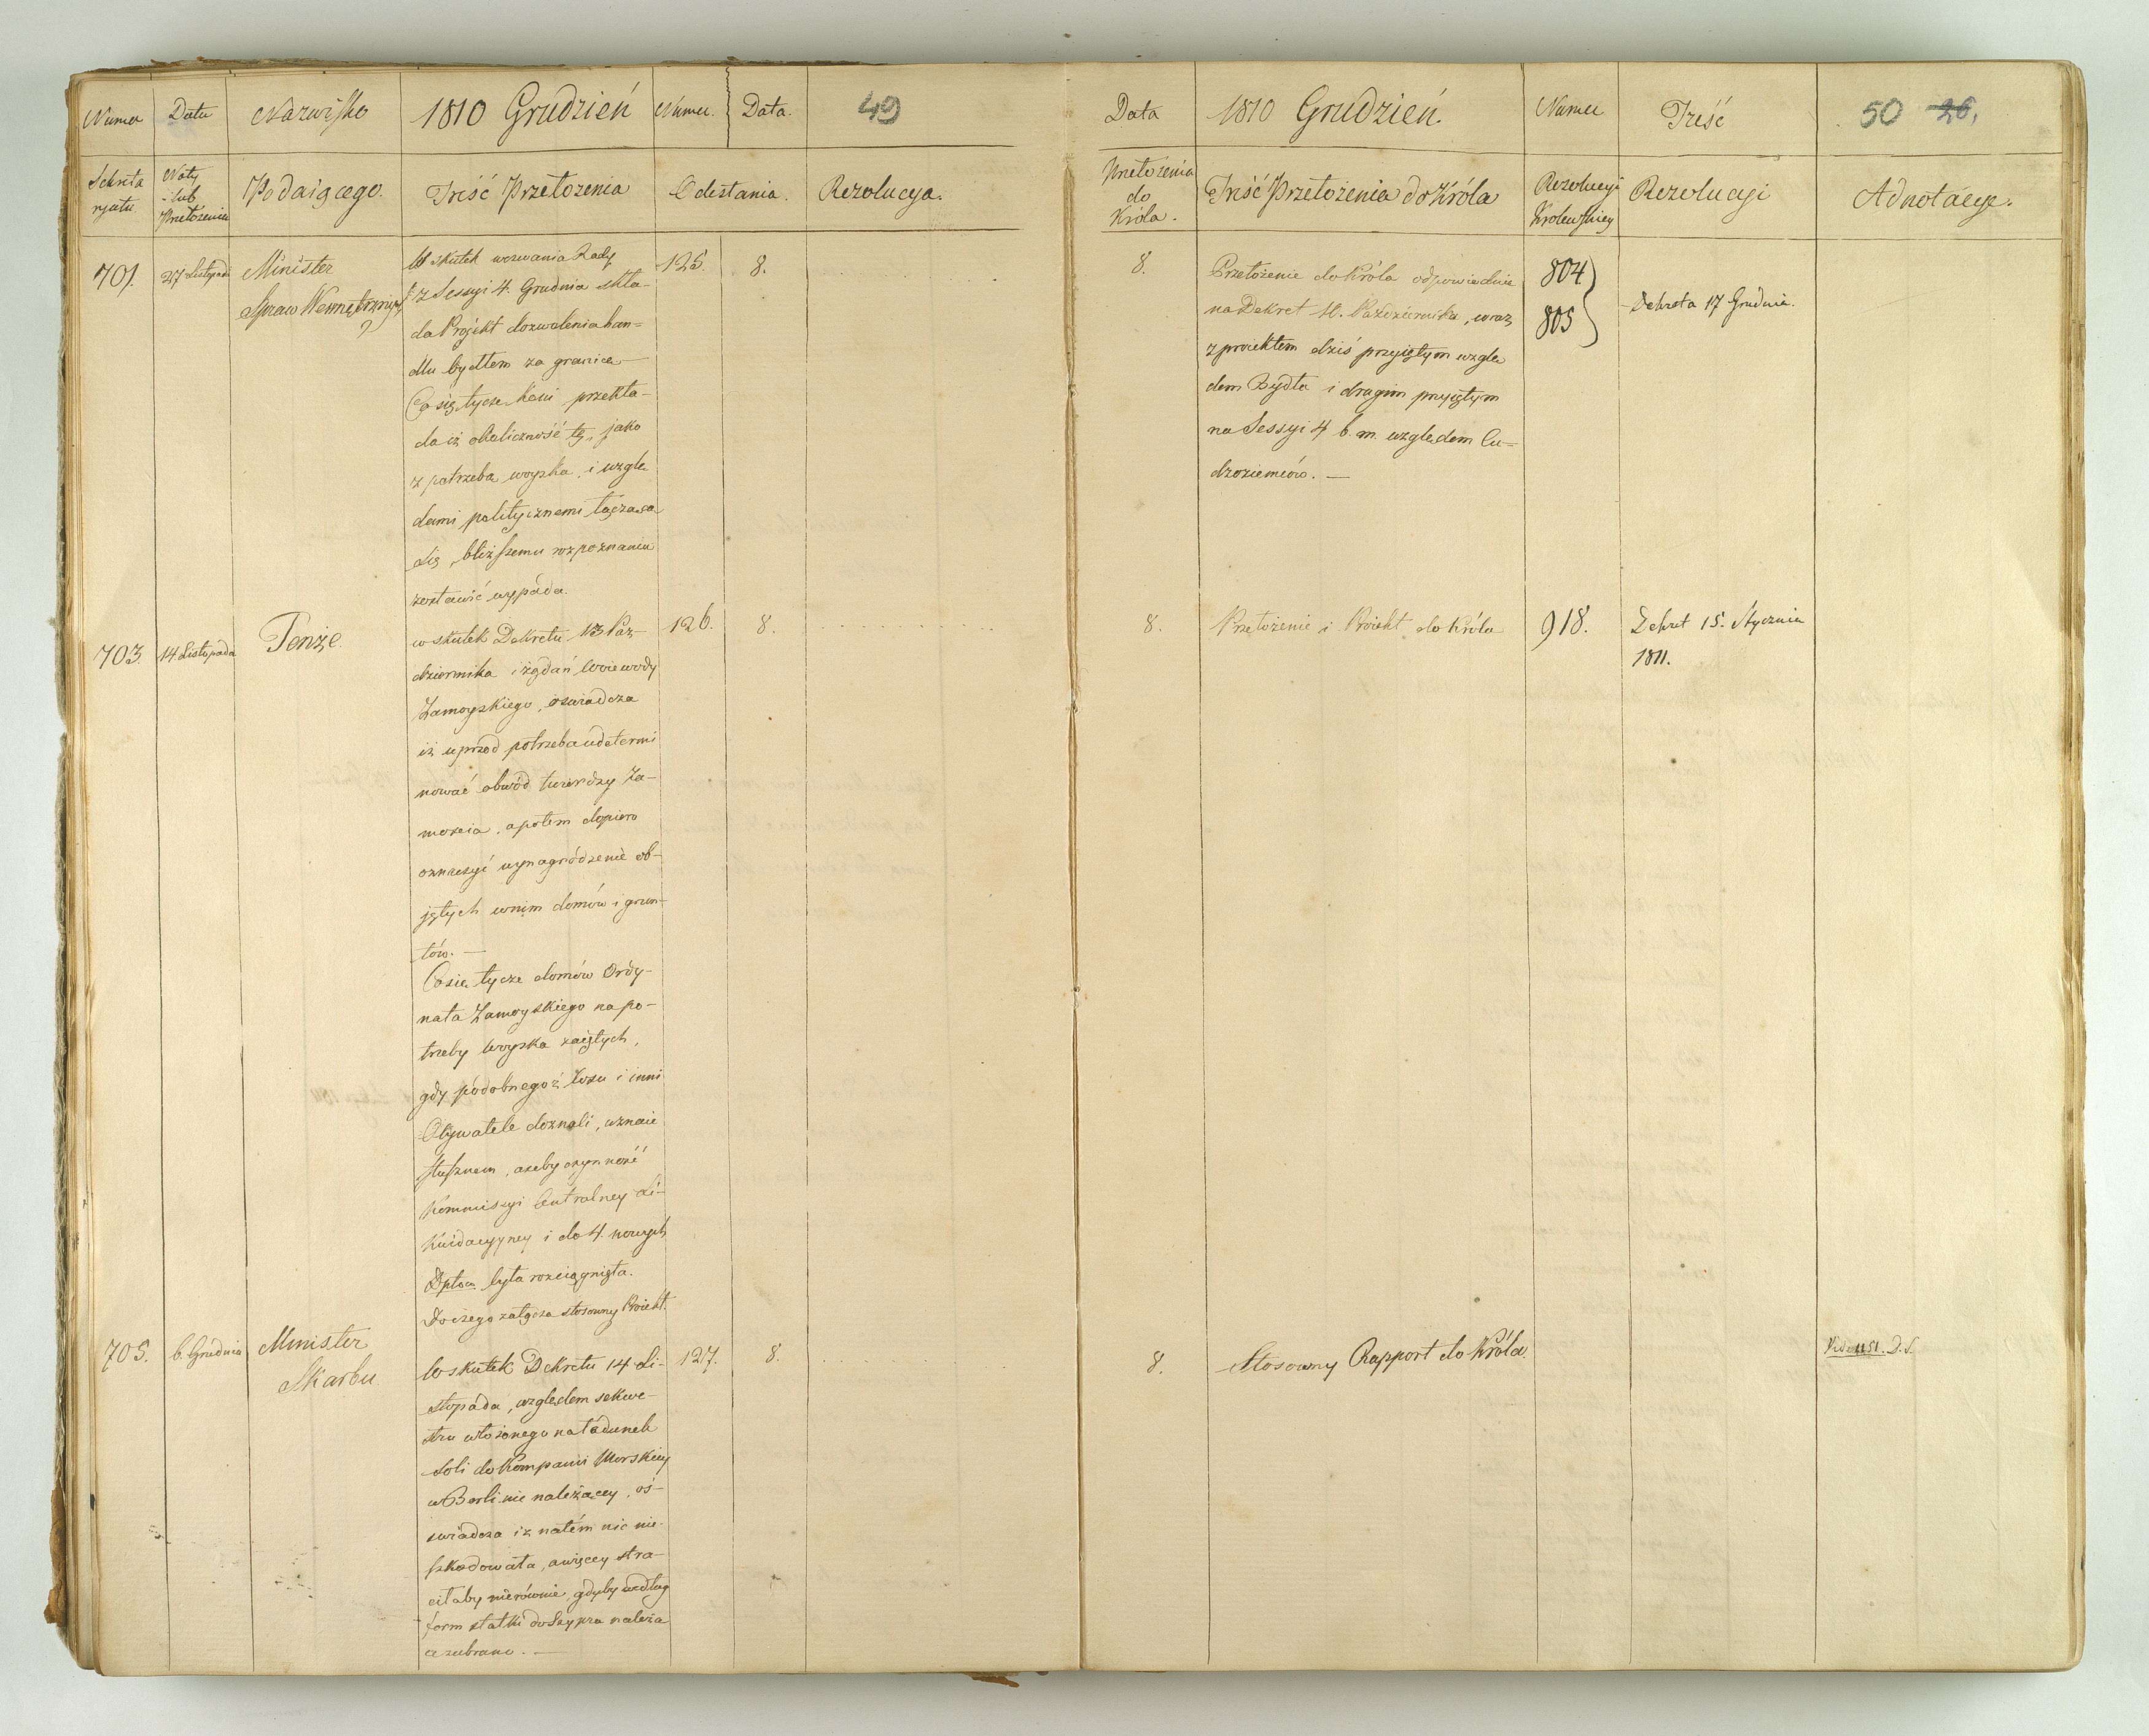 Numer Data Nazwisko 1810 Grudzień Numer. Data. 49
Sekreta
ryatu
Noty
lub
Przełożenia
Podaiącego. Treść Przełożenia Odesłania. Rezolucya.
701. 27 Listopada Minister
Spraw Wewnętrznych
125. 8.
W skutek wezwania Rady
z Sessyi 4. Grudnia skła-
da Projekt dozwolenia han=
dlu bydłem za granicę —
Co się tycze koni przekła-
da iż okoliczność tę, jako
z potrzebą woyska, i wzglę
dami politycznemi łącząca
się, bliższemu rozpoznaniu
zostawić wypada.
703. 14 Listopada Tenże. 126. 8.
w skutek Dekretu 13 Paź-
dziernika i żądań Woiewody
Zamoyskiego, oświadcza
iż uprzód potrzeba udetermi
nować obwód twierdzy Za-
mościa, a potem dopiero
oznaczyć wynagrodzenie ob-
jętych w nim domów i grun-
tów. —
Co się tycze domów Ordy-
nata Zamoyskiego na po-
trzeby woyska zaiętych,
gdy podobnegoż losu i inni
Obywatele doznali, uznaie
słusznem, ażeby czynność
Kommissyi Centralney Li-
kwidacyyney i do 4. nowych
Dptów była rozciągnięta.
Do czego załącza stosowny Proiekt.
705. 6. Grudnia Minister
Skarbu. 127. 8.
W skutek Dekretu 14 Li-
stopada, względem sekwe-
stru włożonego na ładunek
soli do Kompanii Morskiey
w Berlinie należącey, oś-
wiadcza iż na tém nic nie
szkodowała, a więcey stra-
ciłaby nierównie, gdyby według
form statki do Szypra należą
ce zabrano. —
Data 1810 Grudzień. Numer Treść 50 26.
Przełożenia
do
Króla.
Treść Przełożenia do Króla Rezolucyi
Królewskiey
Rezolucyi Adnotacye.
8. Przełożenie do Króla odpowiednie
na Dekret 10. Października, wraz
z proiektem dziś przyiętym wzglę
dem Bydła i drugim przyiętym
na Sessyi 4 b. m. względem Cu=
dzoziemców. —
804
805
Dekreta 17 Grudnia.
8. Przełożenie i Proiekt do Króla 918. Dekret 15. Stycznia
1811.
8. Stosowny Rapport do Króla. 1151. D. S.